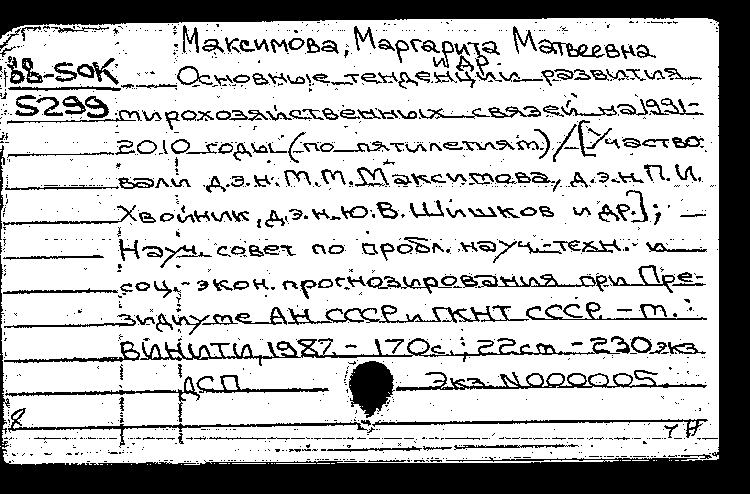 Максимова, Маргарита Матвеевна
и др.
88-50К Основные тенденции развития
5299 мирохозяйственных связей на 1991-
2010 годы (по пятилетиям) / [Участво-
вали д.э.н. М.М. Максимова, д.э.н. П.И.
Хвойник, д.э.н. Ю.В. Шишков и др.]; —
Науч. совет по пробл. науч.-техн. и
соц.-экон. прогнозирования при Пре-
зидиуме АН СССР и ГКНТ СССР. - М. :
ВИНИТИ, 1987. - 170с. ; 22см. - 230 экз.
ДСП Экз. N000005.
8